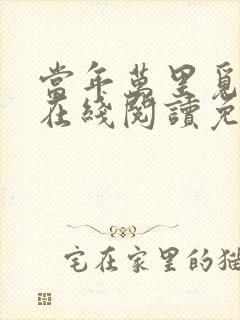 當年萬里覓
在綫閱讀免
宅在家里的猫